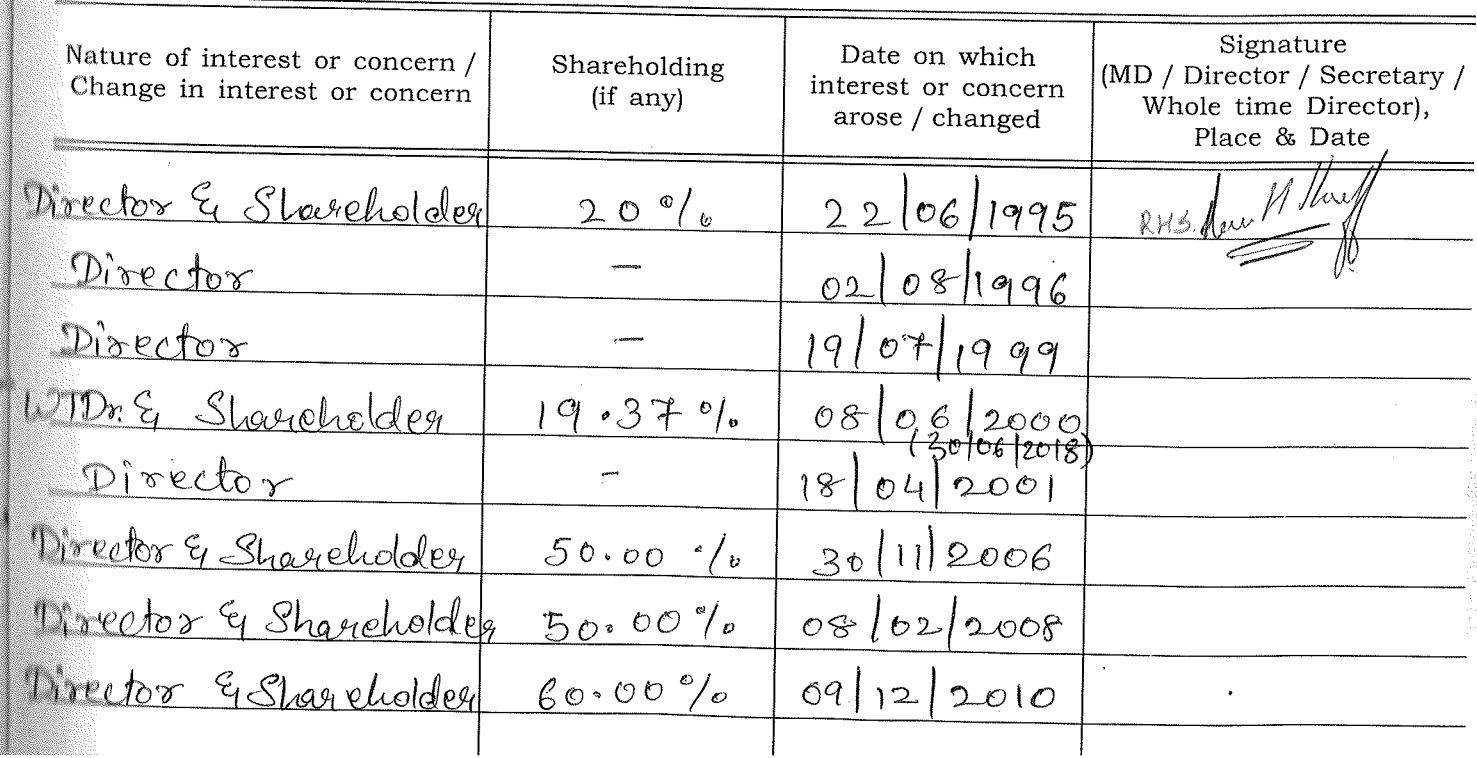 Nature of interest or concern / Change in interest or concern
Shareholding (if any)
Date on which interest or concern arose / changed
Signature (MD / Director / Secretary / Whole time Director), Place & Date
Director & Shareholder 20% 22/06/1995 RHS.
Director - 02/08/1996
Director - 19/07/1999
WTDr. & Shareholder 19.37% 08/06/2000
(30/06/2018)
Director - 18/04/2001
Director & Shareholder 50.00% 30/11/2006
Director & Shareholder 50.00% 08/02/2008
Director & Shareholder 60.00% 09/12/2010